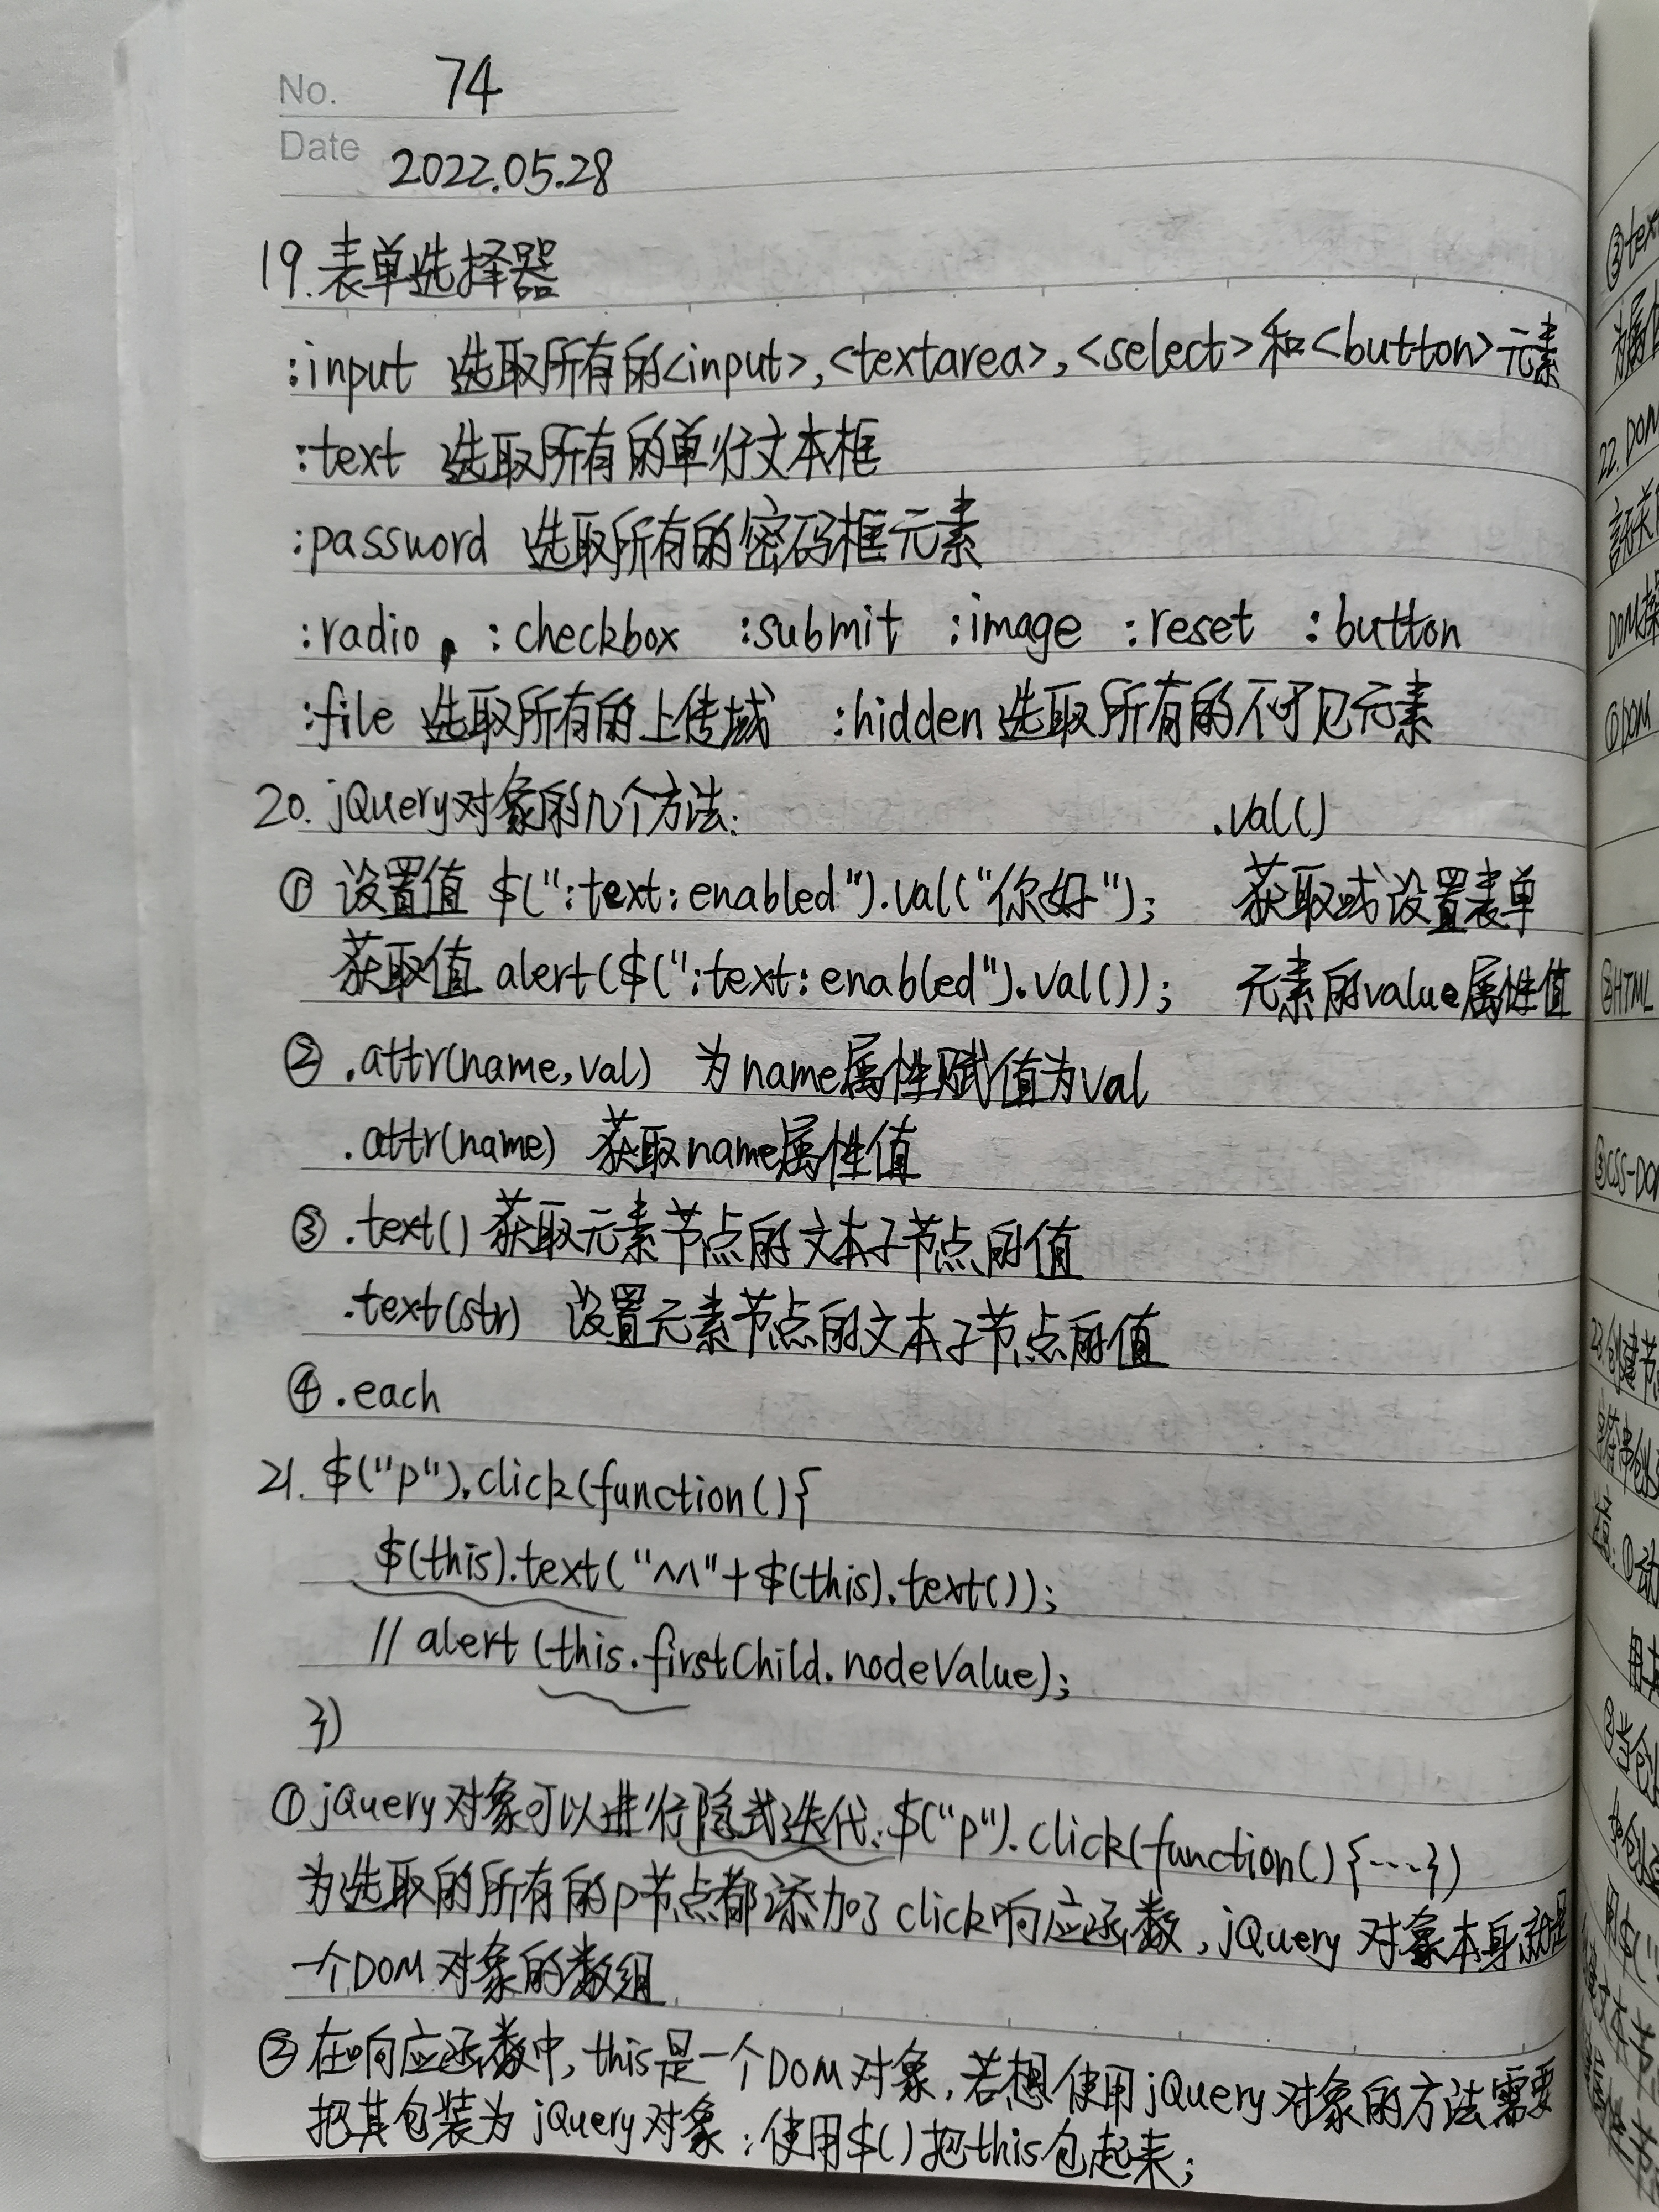 No. 74
Date 2022.05.28
19.表单选择器
:input 选取所有的<input>,<textarea>,<select>和<button>元素
:text 选取所有的单行文本框
:password 选取所有的密码框元素
:radio, :checkbox :submit :image :reset :button
:file 选取所有的上传域 :hidden 选取所有的不可见元素
20. jQuery对象的几个方法: .val()
① 设置值 $(":text:enabled").val("你好"); 获取或设置表单
获取值 alert($(":text:enabled").val()); 元素的value属性值
② .attr(name,val) 为name属性赋值为val
.attr(name) 获取name属性值
③ .text() 获取元素节点的文本子节点的值
.text(str) 设置元素节点的文本子节点的值
④ .each
21. $("p").click(function(){
$(this).text("^^"+$(this).text());
// alert(this.firstChild.nodeValue);
})
① jQuery对象可以进行隐式迭代:$("p").click(function(){····})
为选取的所有的p节点都添加了click响应函数,jQuery对象本身就是
一个DOM对象的数组
② 在响应函数中,this是一个DOM对象,若想使用jQuery对象的方法需要
把其包装为jQuery对象:使用$()把this包起来;
③tex
22. DOM
DOM操
①DOM
②HTML
③CSS-DO
23.创建节